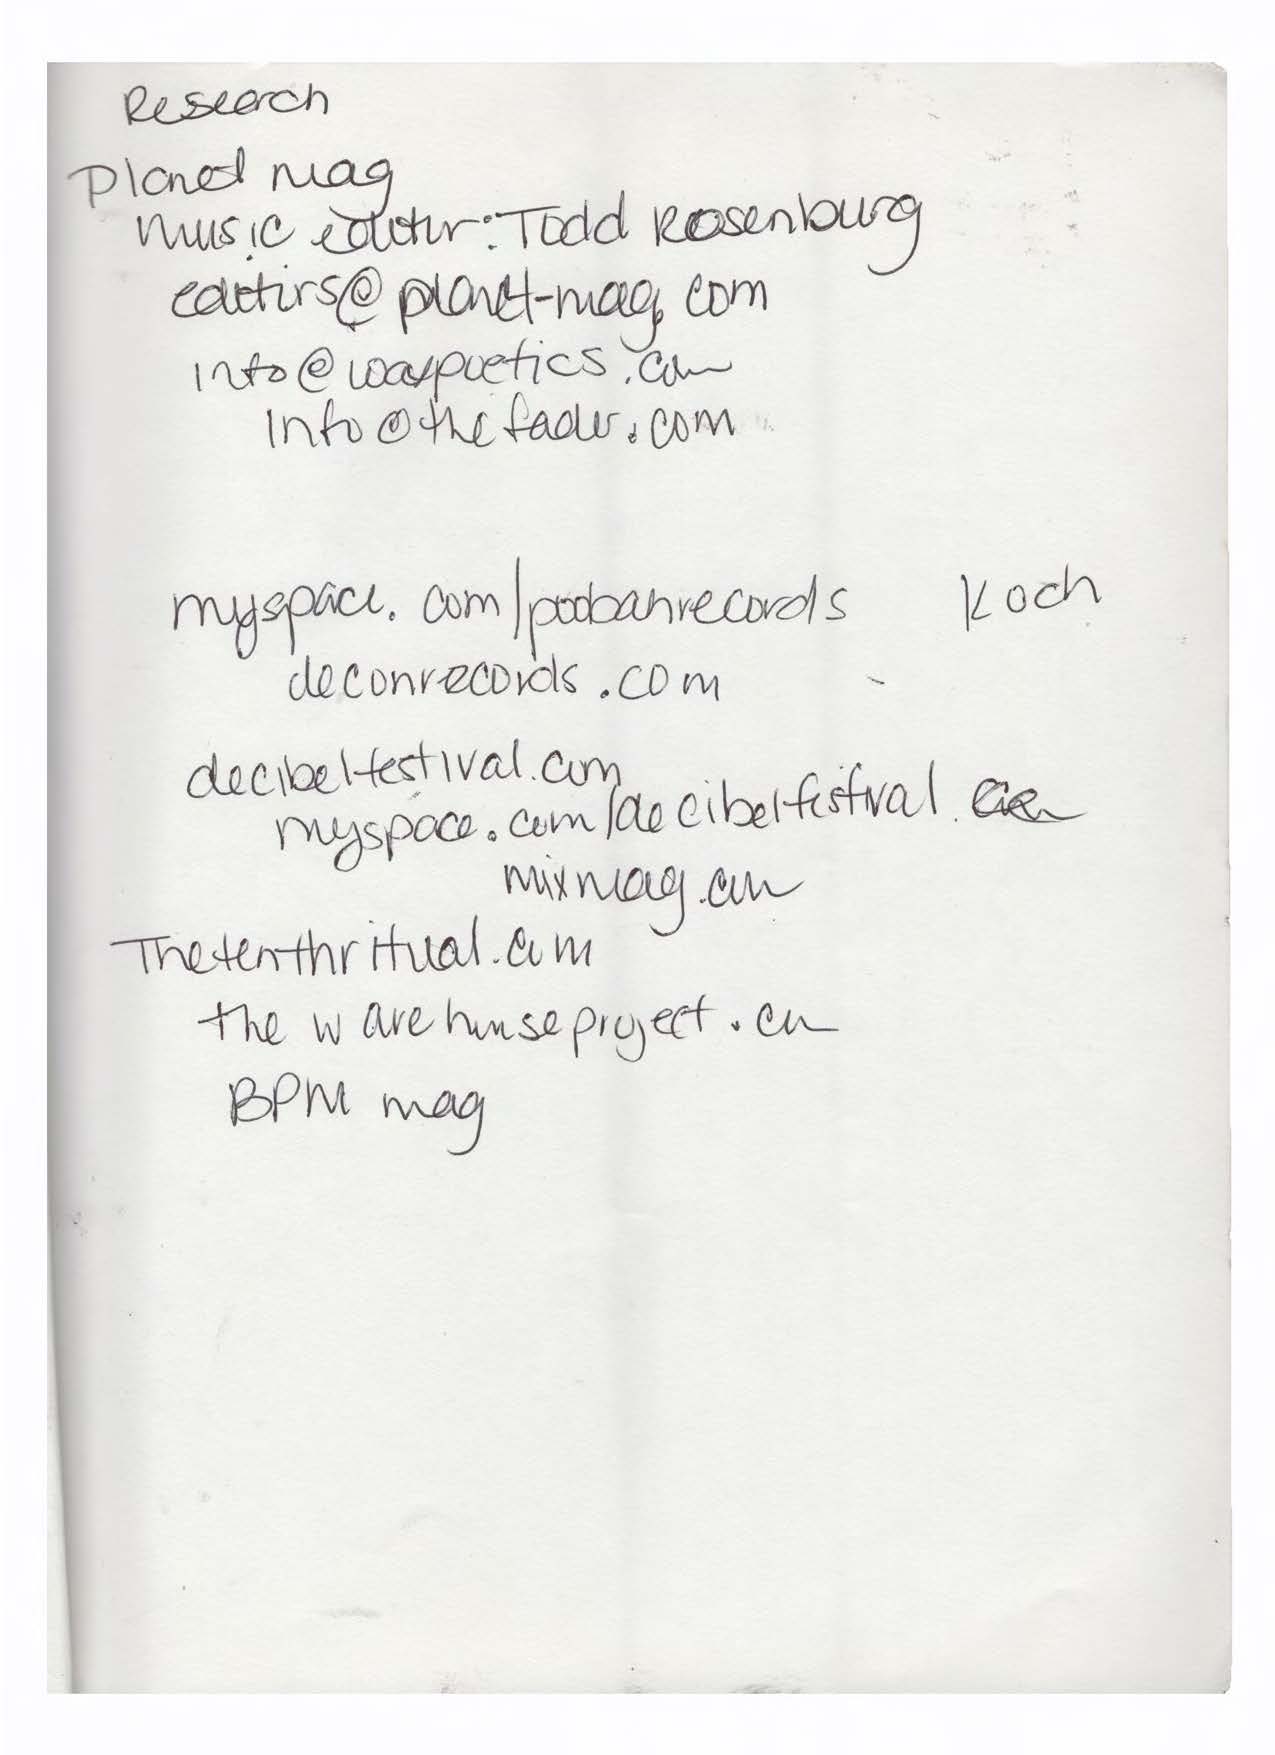 Research
Planet mag
music editor: Todd Rosenburg
editors@planet-mag.com
info@waxpoetics.com
info@thefader.com
myspace.com/poobahrecords Koch
deconrecords.com
decibelfestival.com
myspace.com/decibelfestival.
mixmag.com
Thetenthritual.com
thewarehouseproject.com
BPM mag